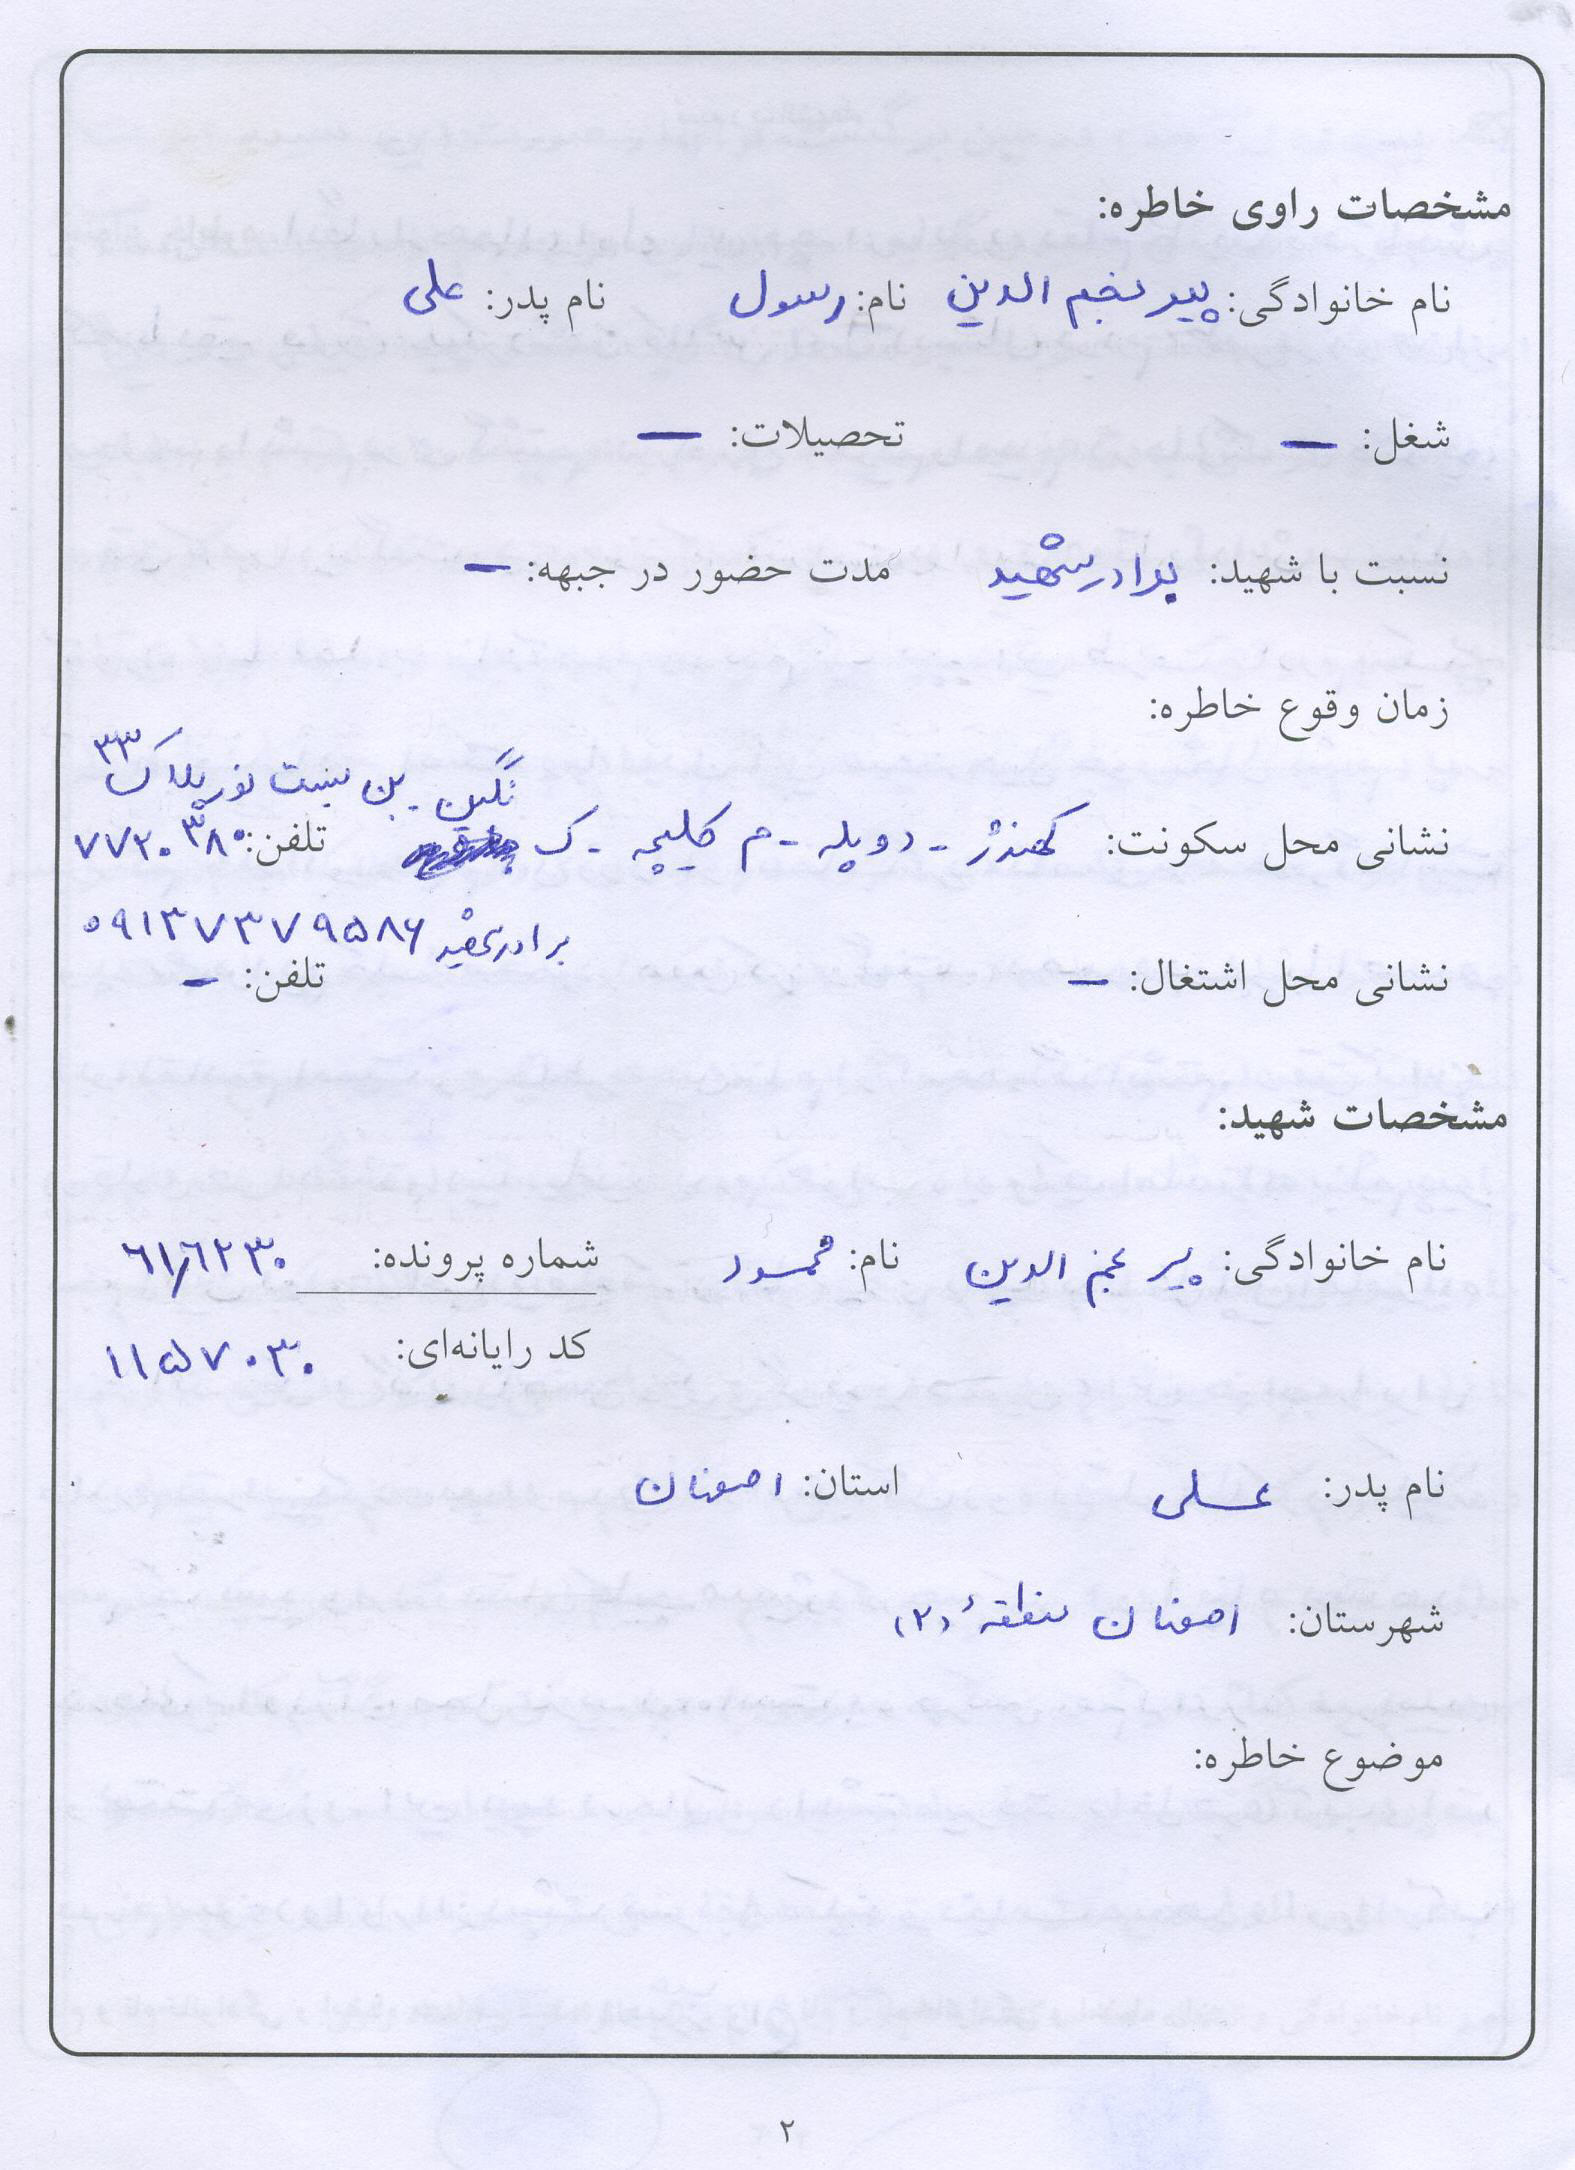 مشخصات راوی خاطره:
نام خانوادگی: پیر نجم الدین نام: رسول نام پدر: علی
شغل: — تحصیلات: —
نسبت با شهید: برادر شهید مدت حضور در جبهه: —
زمان وقوع خاطره:
نگین - بن بست نور پلاک ۳۳
نشانی محل سکونت: کهندژ - دوپله - م کلیچه - ک تلفن: ۷۷۲۰۳۸۰
برادر شهید ۰۹۱۳۷۳۷۹۵۸۶
نشانی محل اشتغال: — تلفن: —
مشخصات شهید:
نام خانوادگی: پیر نجم الدین نام: محمود شماره پرونده: ۶۱/۶۲۳۰
کد رایانه‌ای: ۱۱۵۷۰۳۰
نام پدر: علی استان: اصفهان
شهرستان: اصفهان منطقهٔ (۲)
موضوع خاطره:
۲